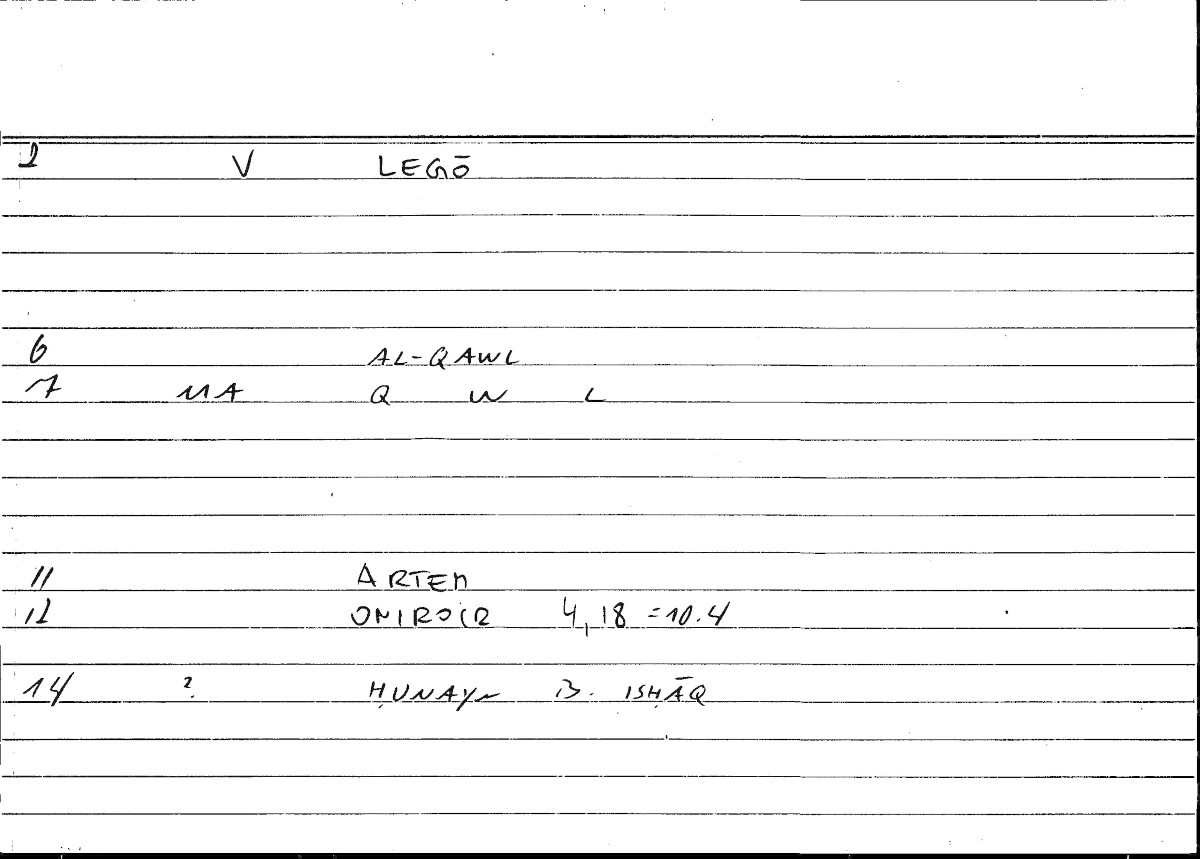 2 V LEGŌ
6 AL-QAWL
7 MA Q W L
11 ARTEM
12 ONIROCR 4,18 =10.4
14 ? ḤUNAYN B. ISḤĀQ